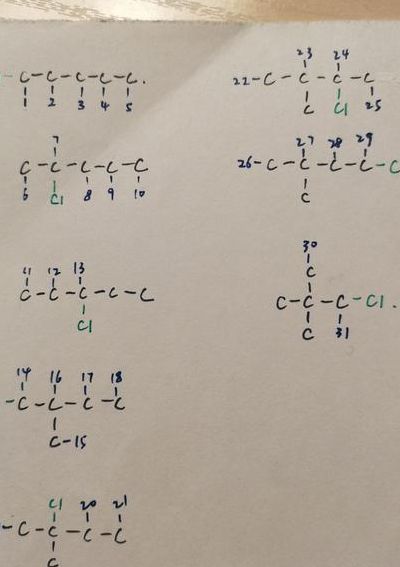 -C-C-C-C-C.
1 2 3 4 5
7
C-C-C-C-C
6 Cl 8 9 10
11 12 13
C-C-C-C-C
Cl
14 16 17 18
-C-C-C-C
C-15
Cl 20 21
-C-C-C-C
C
23 24
22-C-C-C-C
C Cl 25
27 28 29
26-C-C-C-C-C
C
30
C
C-C-C-Cl.
C 31